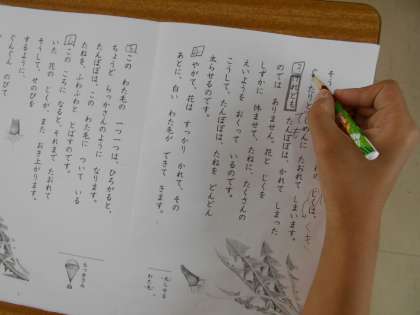 じくは、
じめんに たおれて しまいます。
3 けれども、たんぽぽは、かれて しまった
のでは ありません。花と じくを
しずかに 休ませて、たねに、たくさんの
えいようを おくって いるのです。
こうして、たんぽぽは、たねを どんどん
太らせるのです。
4 やがて、花は すっかり かれて、その
あとに、白い わた毛が できて きます。
5 この わた毛の 一つ一つは、ひろがると、
ちょうど らっかさんのように なります。
たんぽぽは、この わた毛に ついて いる
たねを、ふわふわと とばすのです。
らっかさん
6 この ころに なると、それまで たおれて
いた 花の じくが、また おき上がります。
そうして、せのびを
するように、
のびて